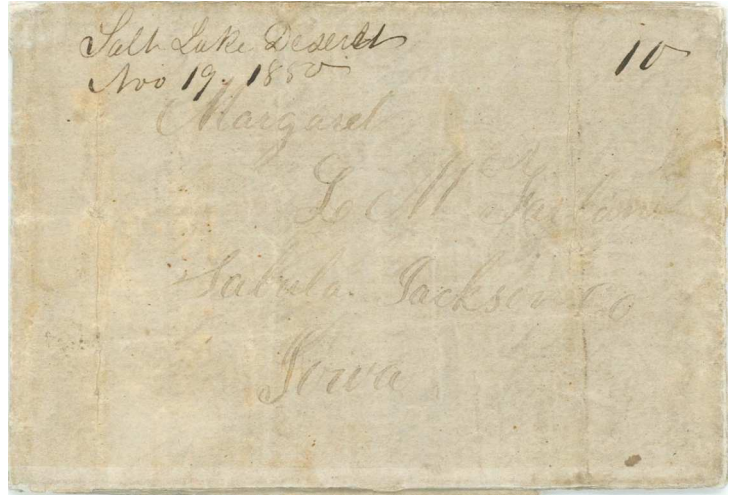 Salt Lake Deseret
Nov 19. 1850
10
Margaret
L Mc
Sabula. Jackson Co
Iowa